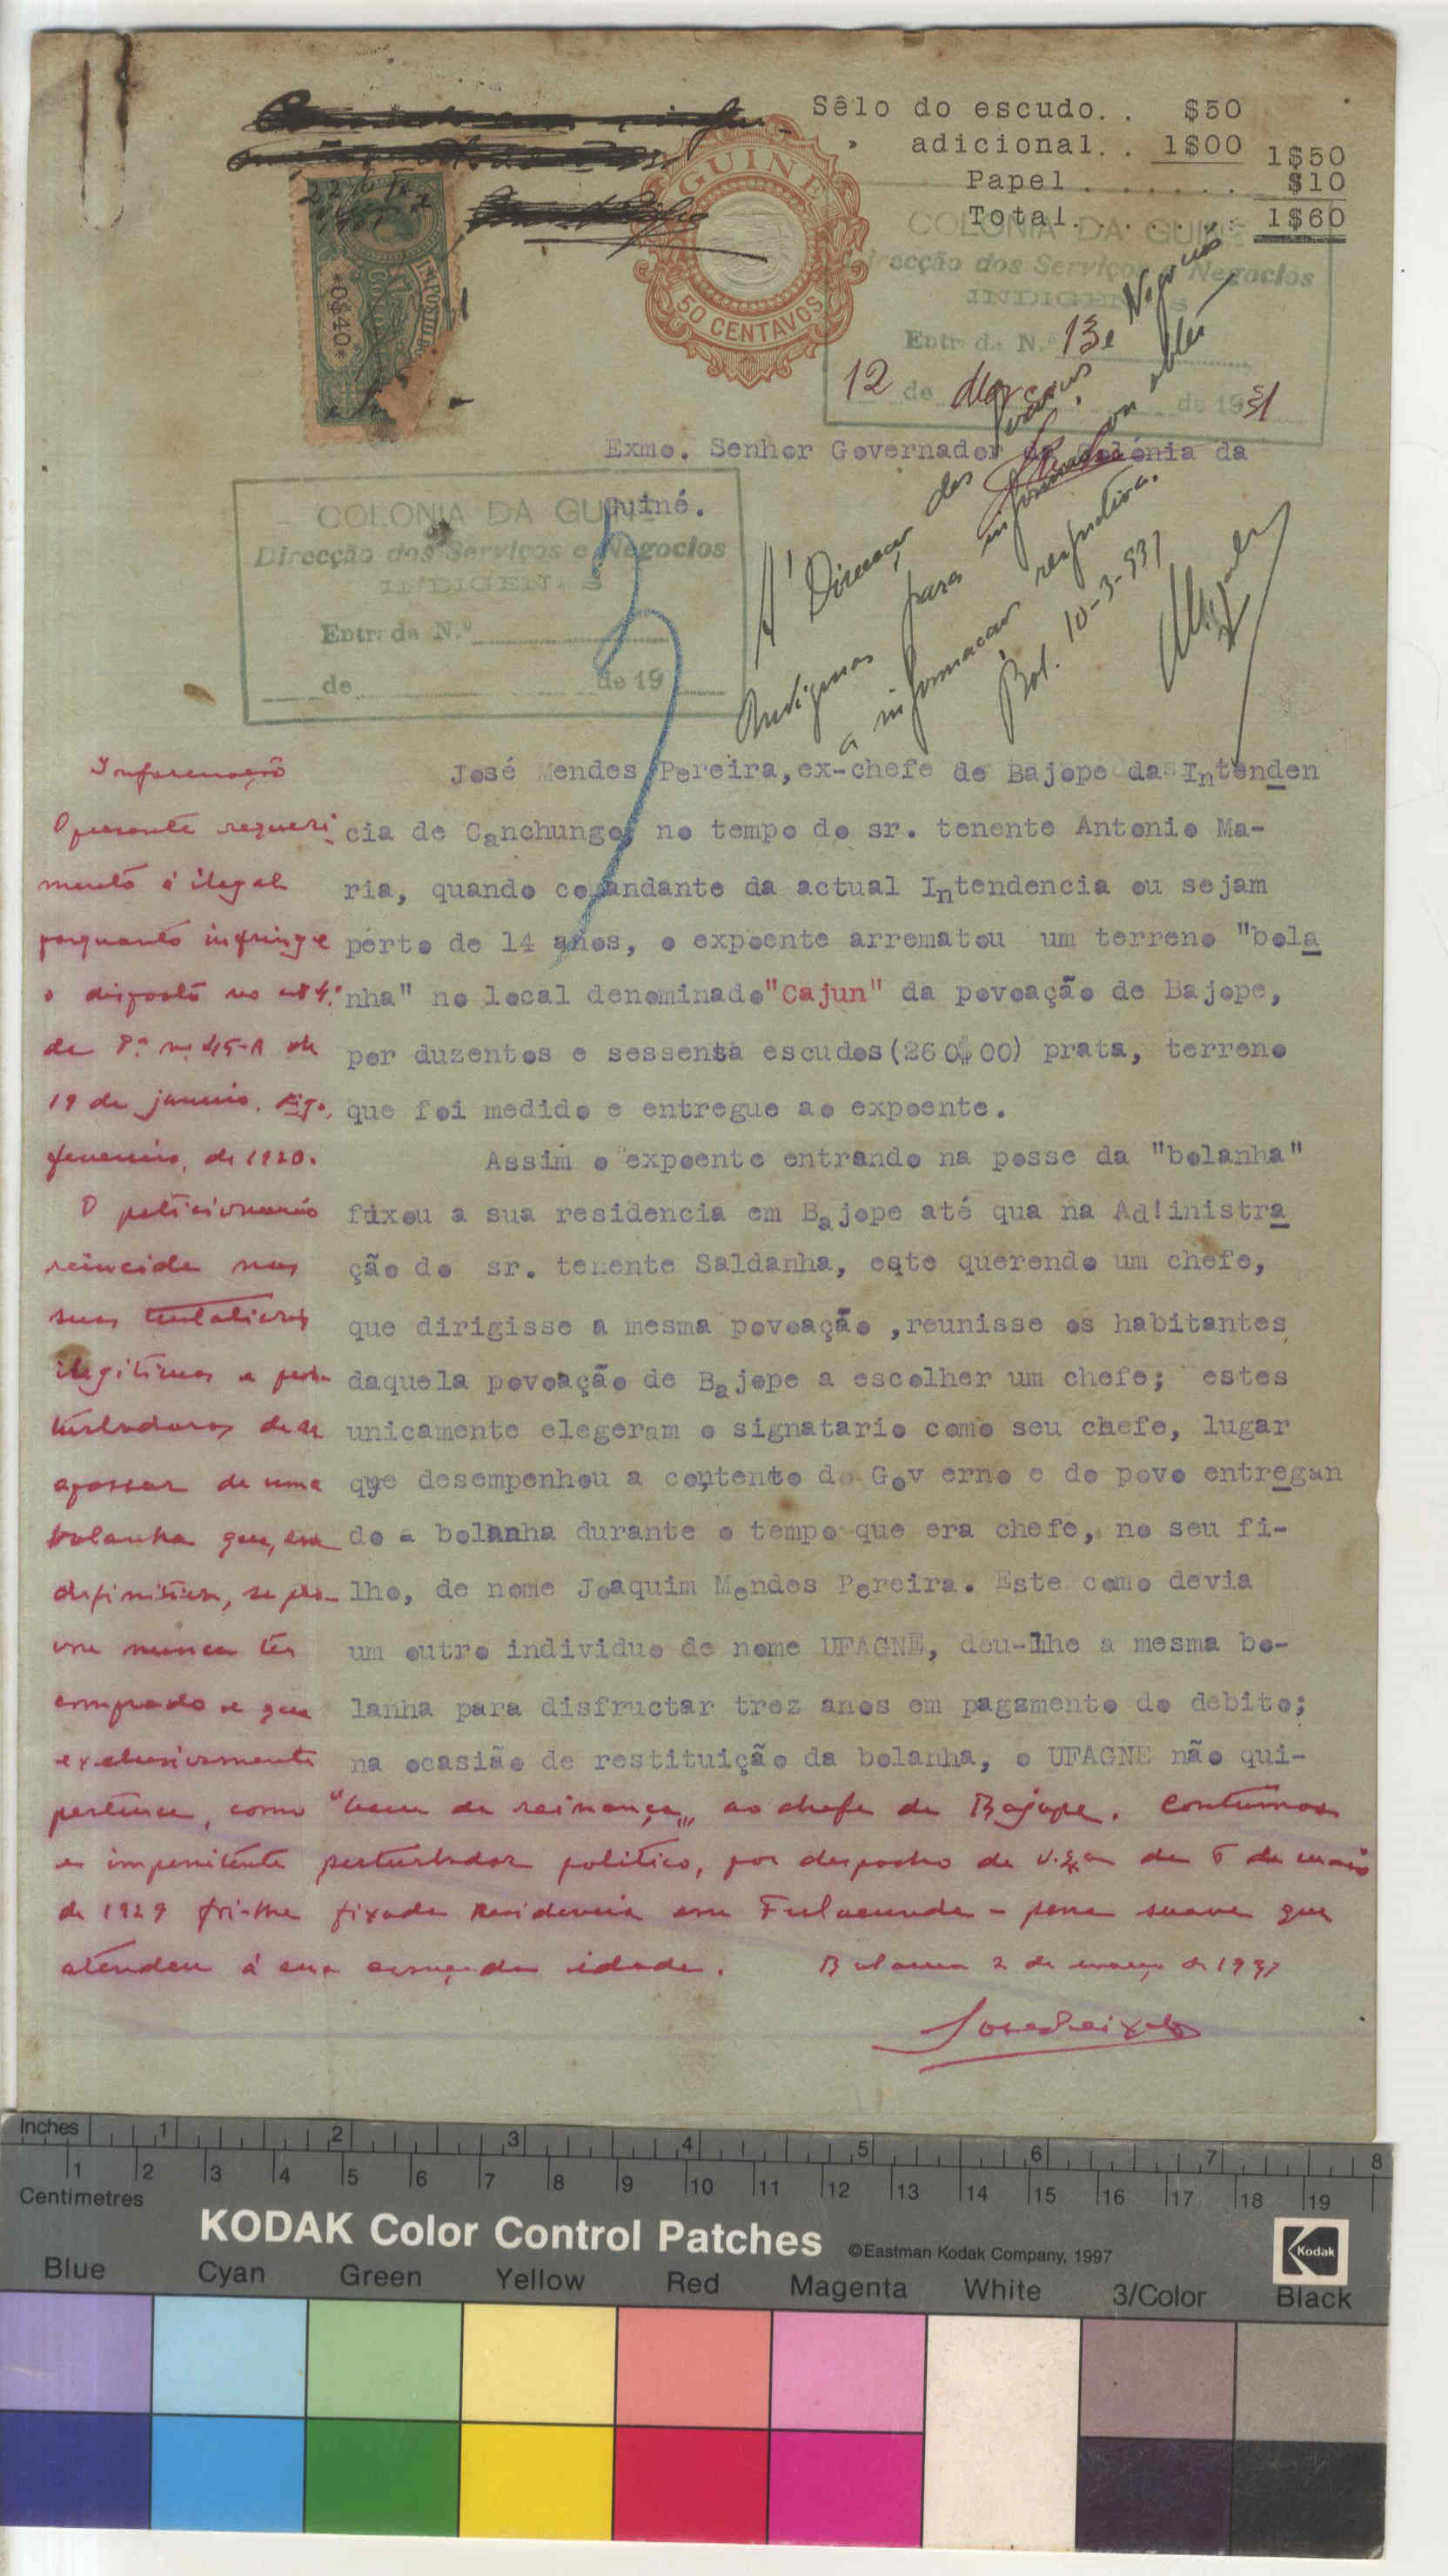 Sêlo do escudo. . $50
" adicional. . 1$00 1$50
Papel . . . . . . . $10
Total. . . . . . . 1$60
GUINÉ
50 CENTAVOS
IMPOSTO DO
*0$40*
COLONIA DA GUINÉ
Direcção dos Serviços e Negocios
INDIGENAS
Entrada N.º 13
12 de Março de 1931
Exmo. Senhor Governador da Colónia da
Guiné.
COLONIA DA GUINÉ
Direcção dos Serviços e Negocios
INDIGENAS
Entrada N.º
de de 19
Á Direcção dos Serviços e Negocios
Indigenas para informar ou obter
a informação respectiva.
Bol. 10-3-931
José Mendes Pereira,ex-chefe de Bajope da Intenden
cia de Canchungo, no tempo do sr. tenente Antonio Ma-
ria, quando comandante da actual Intendencia ou sejam
pérto de 14 anos, o expoente arrematou um terreno "bola
nha" no local denominado"Cajun" da povoação de Bajope,
por duzentos e sessenta escudos(260$00) prata, terreno
que foi medido e entregue ao expoente.
Assim o expoente entrando na posse da "bolanha"
fixou a sua residencia em Bajope até qua na Ad!inistra
ção do sr. tenente Saldanha, este querendo um chefe,
que dirigisse a mesma povoação ,reunisse os habitantes
daquela povoação de Bajope a escolher um chefe; estes
unicamente elegeram o signatario como seu chefe, lugar
que desempenhou a contento do Gov erno e do povo entregan
do a bolanha durante o tempo que era chefe, no seu fi-
lho, de nome Joaquim Mendes Pereira. Este como devia
um outro individuo de nome UFAGNE, deu-lhe a mesma bo-
lanha para disfructar trez anos em pagamento do debito;
na ocasião de restituição da bolanha, o UFAGNE não qui-
Informação
O presente requeri
mento é ilegal
porquanto infringe
o disposto no
da P.ª n.º 45-A de
19 de janeiro,
fevereiro, de 1920.
O peticionario
reincide nas
suas tentativas
ilegitimas e per-
turbadoras de se
apossar de uma
bolanha que, em
definitivo, se pro-
va nunca ter
comprado e que
exclusivamente
pertence, como "bem de reinança" ao chefe de Bajope. Contumaz
e impenitente perturbador politico, por despacho de V. Exa de 6 de maio
de 1929 foi-lhe fixada residencia em Fulacunda - pena suave que
atendeu á sua avançada idade. Bolama 2 de março de 1931
Inches 1 2 3 4 5 6 7 8
Centimetres 1 2 3 4 5 6 7 8 9 10 11 12 13 14 15 16 17 18 19
KODAK Color Control Patches ©Eastman Kodak Company, 1997 Kodak
Blue Cyan Green Yellow Red Magenta White 3/Color Black